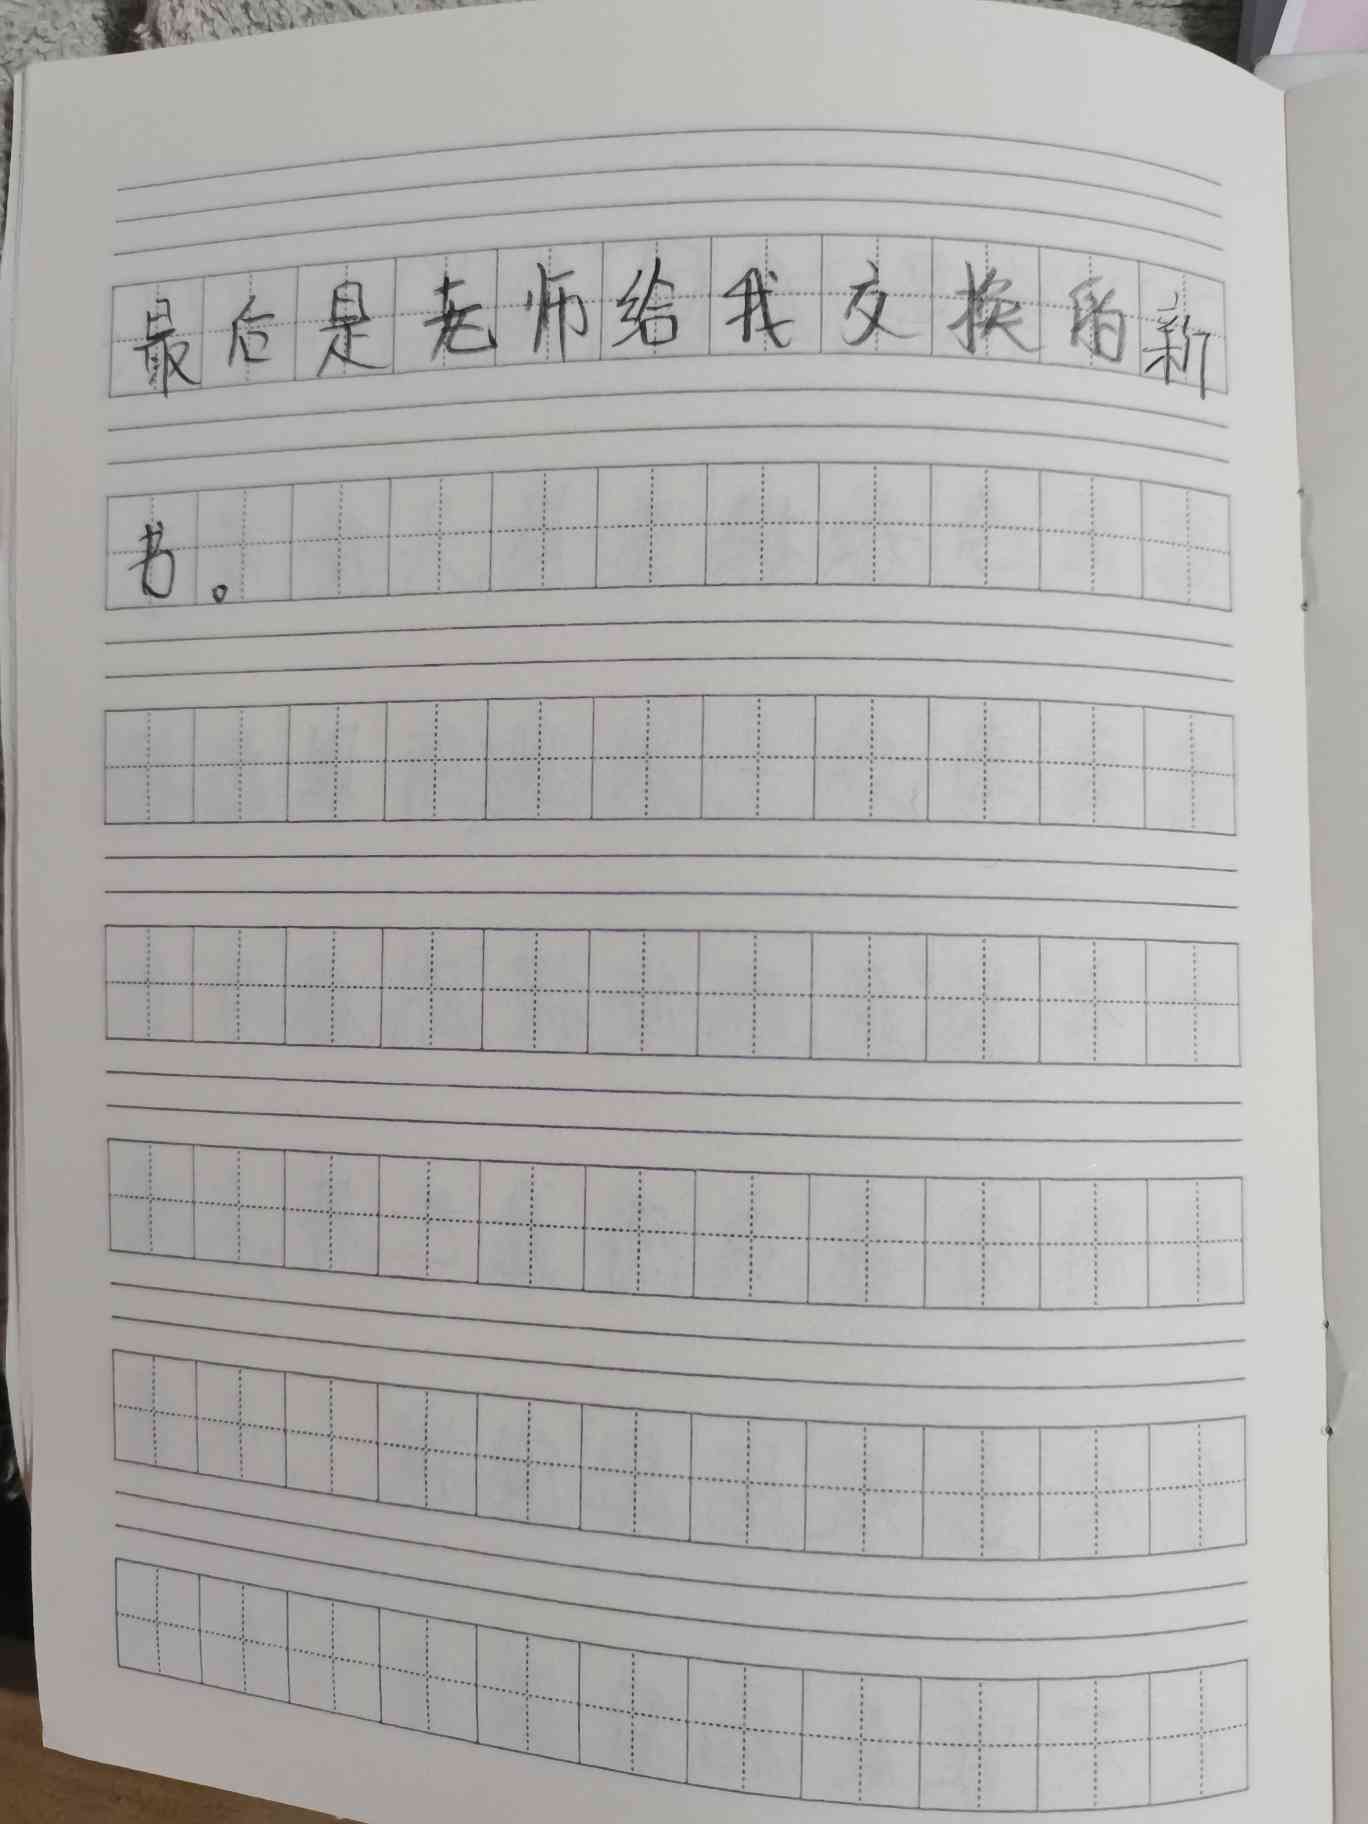 最后是老师给我交换的新
书。